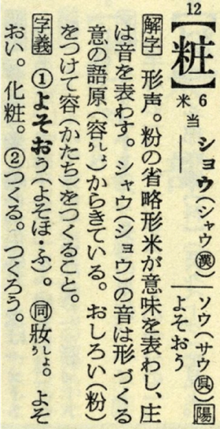 12
【粧】
米6
当
ショウ(シャウ)㊊漢
ソウ(サウ)呉 陽
よそおう
解字 形声。粉の省略形米が意味を表わし、庄
は音を表わす。シャウ(ショウ)の音は形づくる
意の語原(容しょう)からきている。おしろい(粉)
をつけて容(かたち)をつくること。
字義 ①よそおう(よそほ・ふ)。同妝しょう。よそ
おい。化粧。②つくる。つくろう。